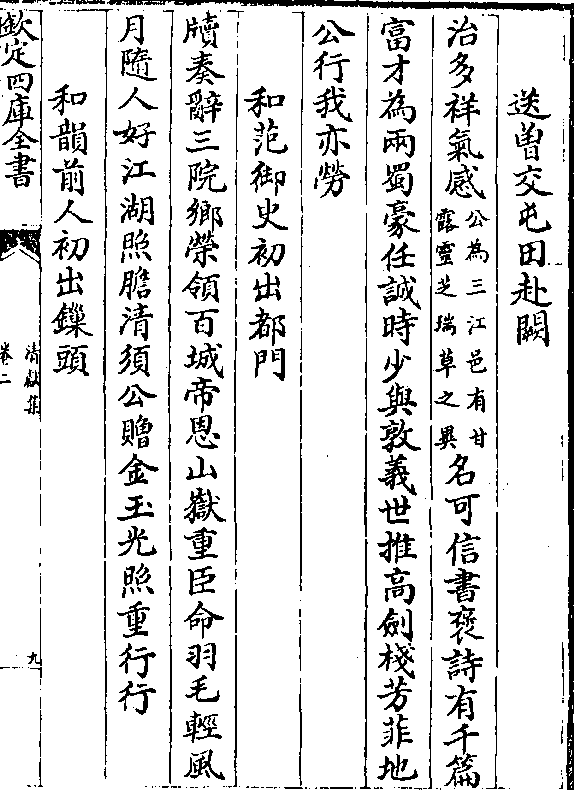 送曽交屯田赴闕
治多祥氣感公為三江邑有甘露靈芝瑞草之異名可信書褒詩有千篇
富才為兩蜀豪任誠時少與敦義世推高劍棧芳菲地
公行我亦勞
和范御史初出都門
牘奏辭三院鄉榮領百城帝恩山嶽重臣命羽毛輕風
月隨人好江湖照膽清須公贈金玉光照重行行
和韻前人初出鏁頭
欽定四庫全書
清獻集
卷二
九